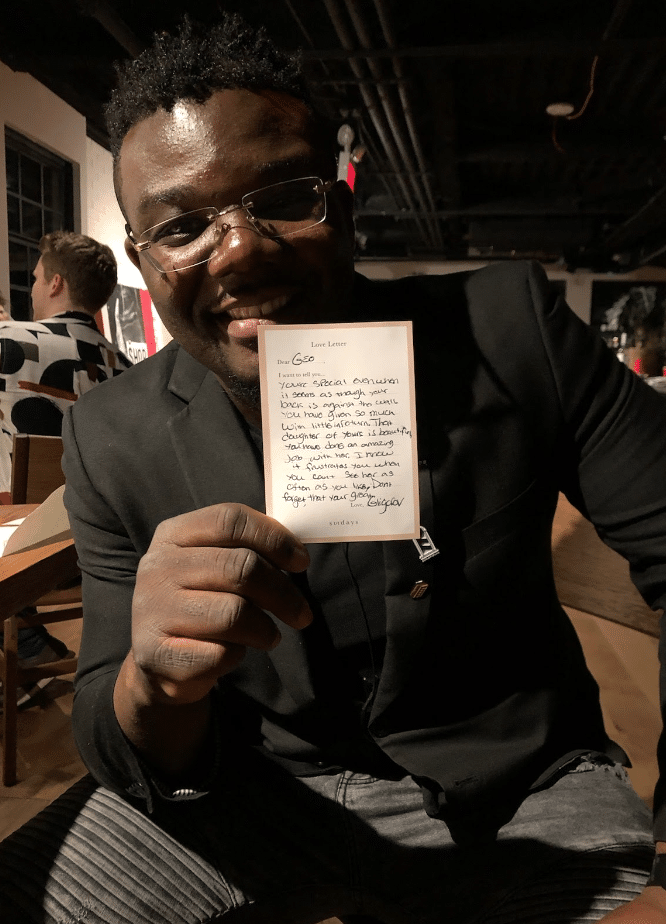 Love Letter
Dear Geo
I want to tell you...
You're special even when
it seems as though your
back is against the wall.
You have given so much
with little in return. That
daughter of yours is beautiful
You have done an amazing
Job with her. I know
it frustrates you when
you can't see her as
often as you like, Dont
forget that your great
Love,
sundays